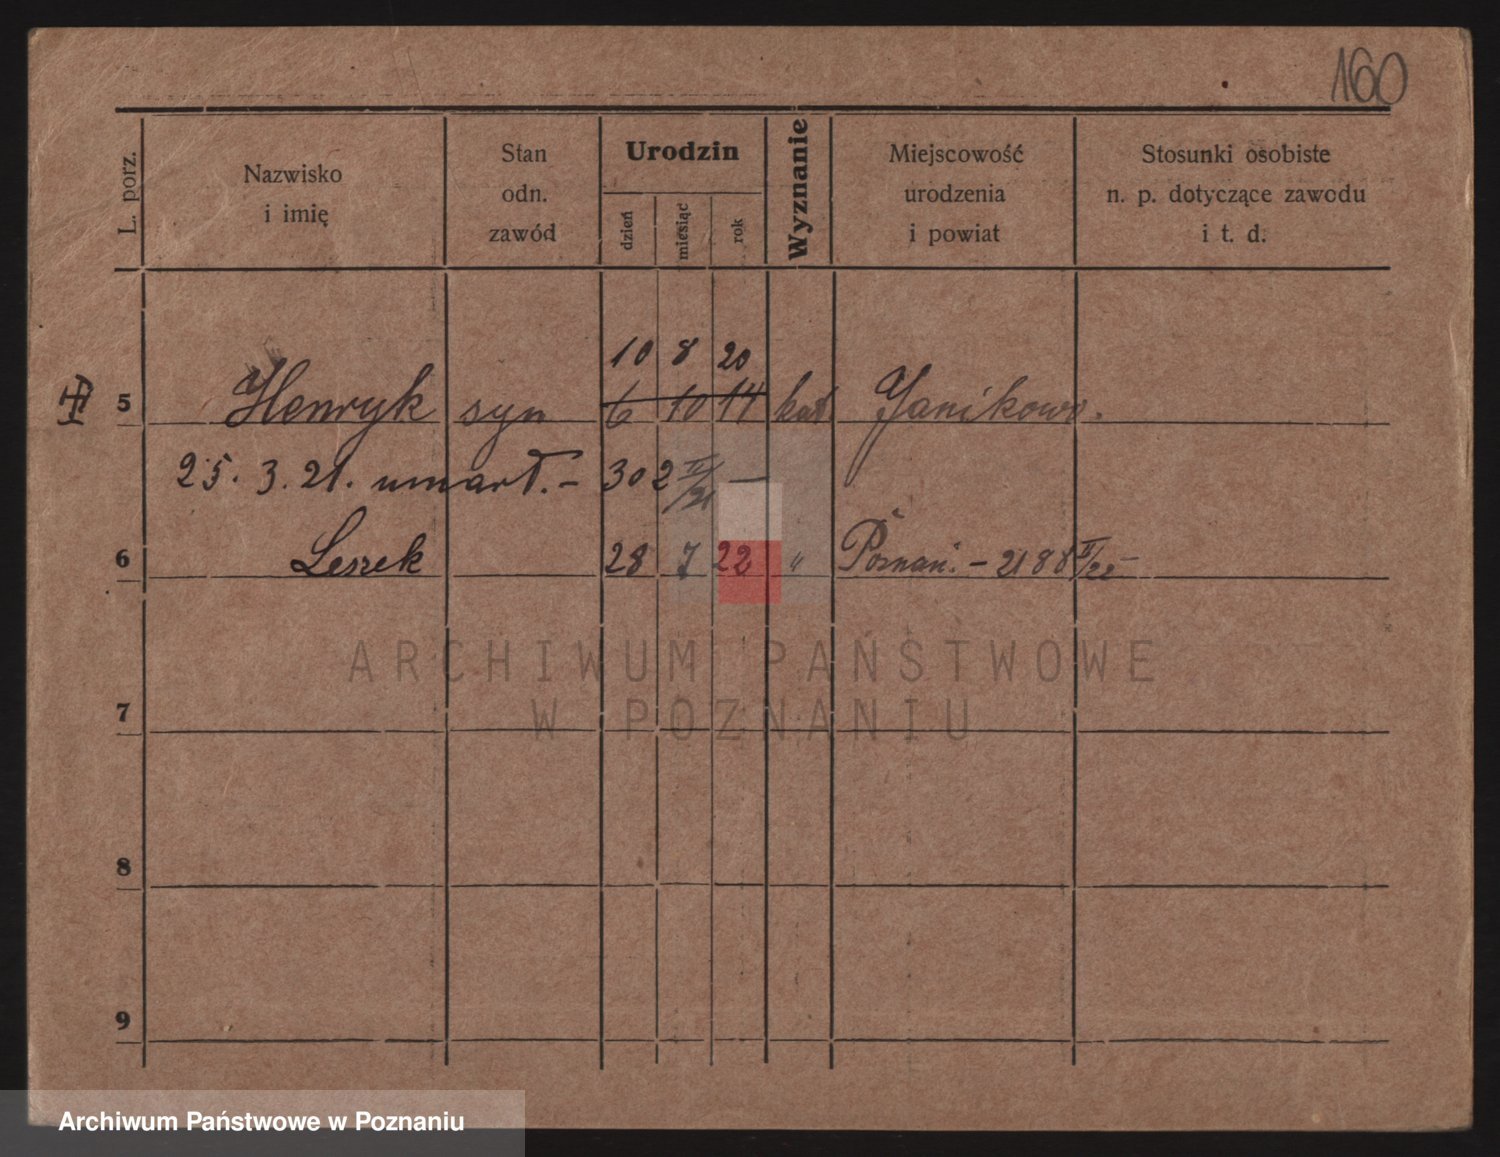 160
L. porz.
Nazwisko
i imię
Stan
odn.
zawód
Urodzin
dzień
miesiąc
rok
Wyznanie
Miejscowość
urodzenia
i powiat
Stosunki osobiste
n. p. dotyczące zawodu
i t. d.
10 8 20
5 Henryk syn 6 10 14 kat. Janikowo.
25. 3. 21. umarł. – 302 II/21 –
6 Leszek 28 7 22 " Poznań. – 2188 II/22 –
ARCHIWUM PAŃSTWOWE
W POZNANIU
7
8
9
Archiwum Państwowe w Poznaniu